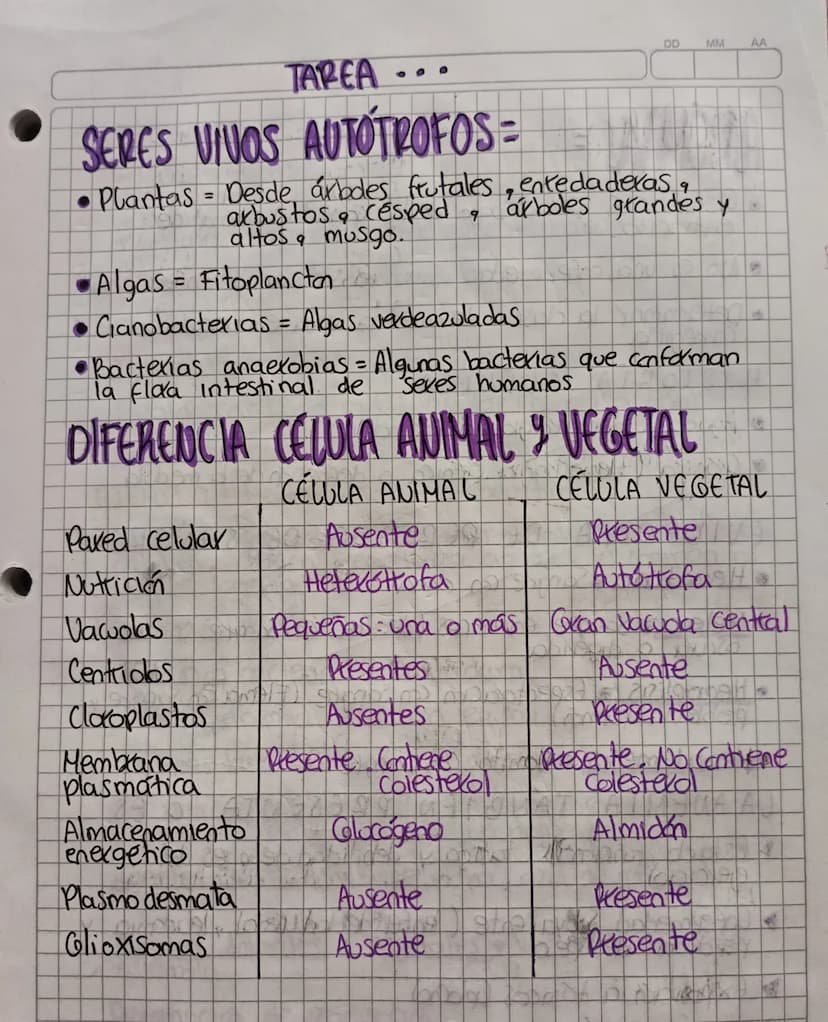 DD MM AA
TAREA ...
SERES VIVOS AUTÓTROFOS=
• Plantas = Desde árboles frutales, enredaderas,
arbustos, césped, árboles grandes y
altos, musgo.
• Algas = Fitoplancton
• Cianobacterias = Algas verdeazuladas
• Bacterias anaerobias = Algunas bacterias que conforman
la flora intestinal de seres humanos
DIFERENCIA CÉLULA ANIMAL y VEGETAL
CÉLULA ANIMAL CÉLULA VEGETAL
Pared celular Ausente Presente
Nutrición Heterótrofa Autótrofa
Vacuolas Pequeñas: una o más Gran vacuola central
Centriolos Presentes Ausente
Cloroplastos Ausentes Presente
Membrana Presente. Contiene Presente. No Contiene
plasmática Colesterol Colesterol
Almacenamiento Glucógeno Almidón
energético
Plasmodesmata Ausente Presente
Glioxisomas Ausente Presente